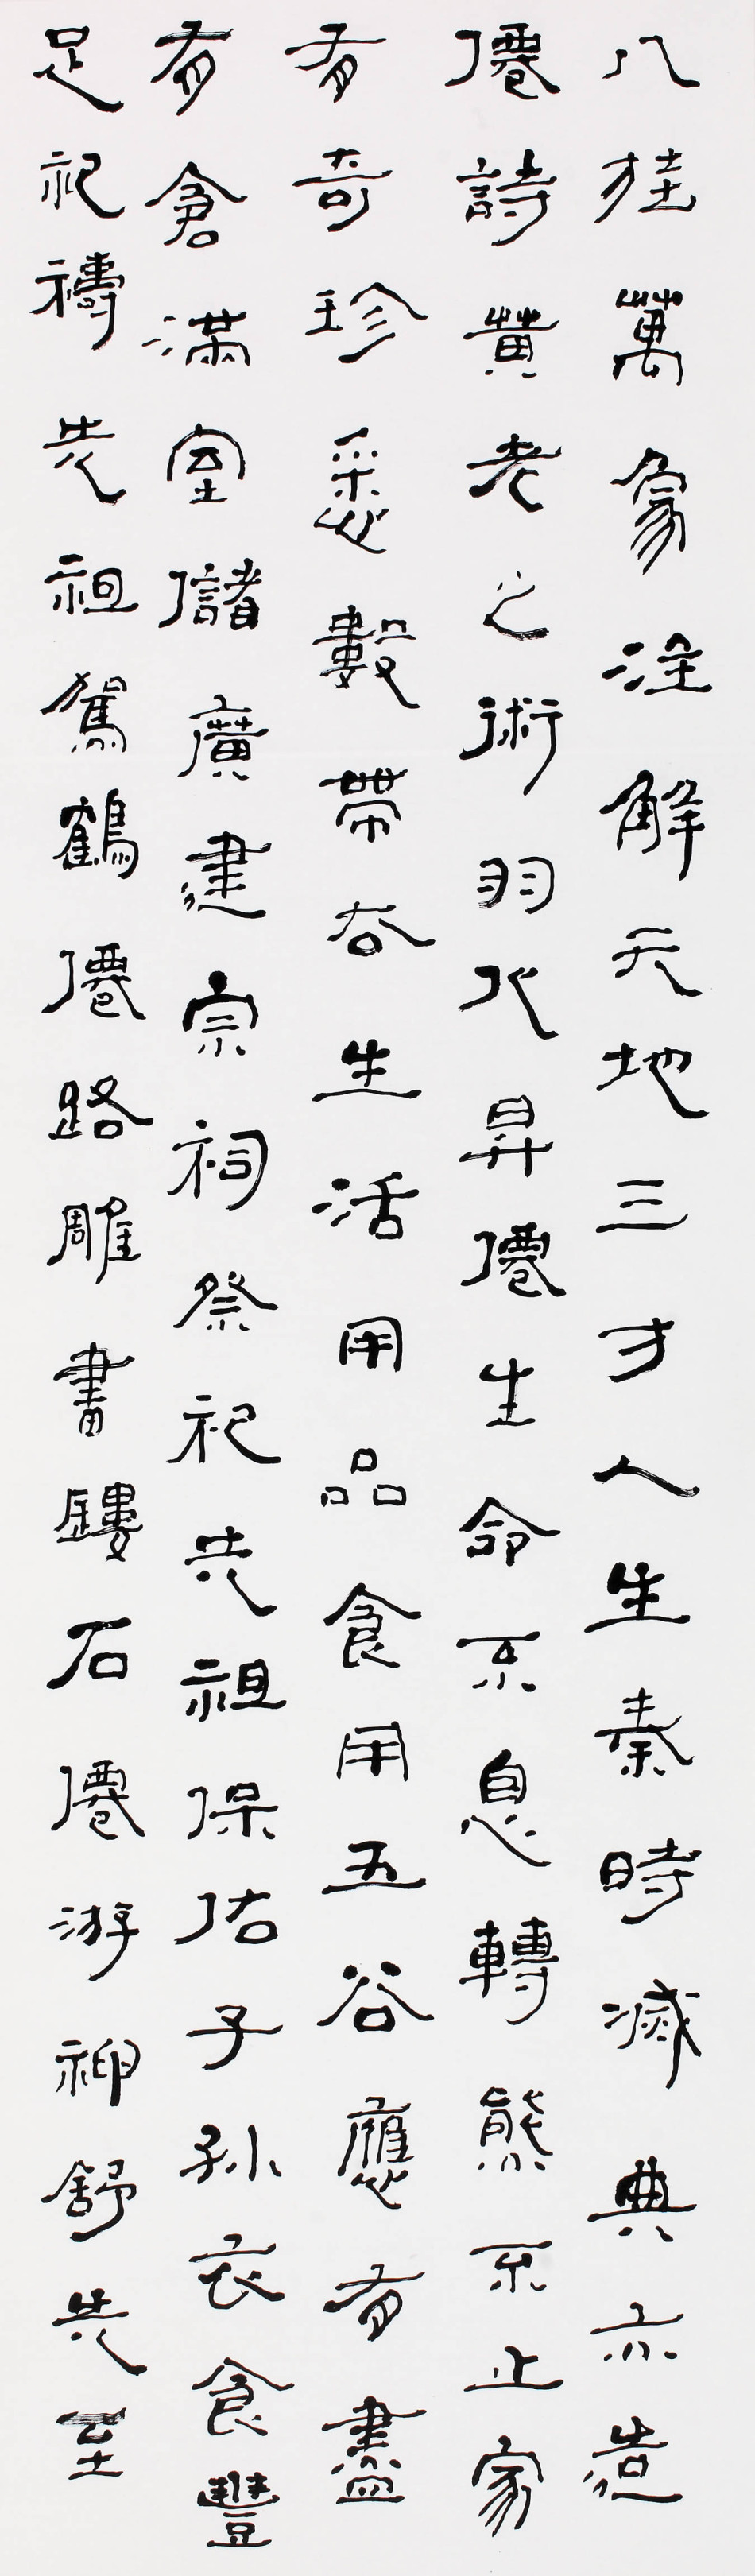 八桂萬象注解天地三才人生秦時滅典亦造
僊詩黃老之術羽化昇僊生命不息轉態不止家
有奇珍悉數帶去生活用品食用五谷應有盡
有倉滿室儲廣建宗祠祭祀先祖保佑子孫衣食豐
足祀禱先祖駕鶴僊路雕畫鏤石僊游神舒先至